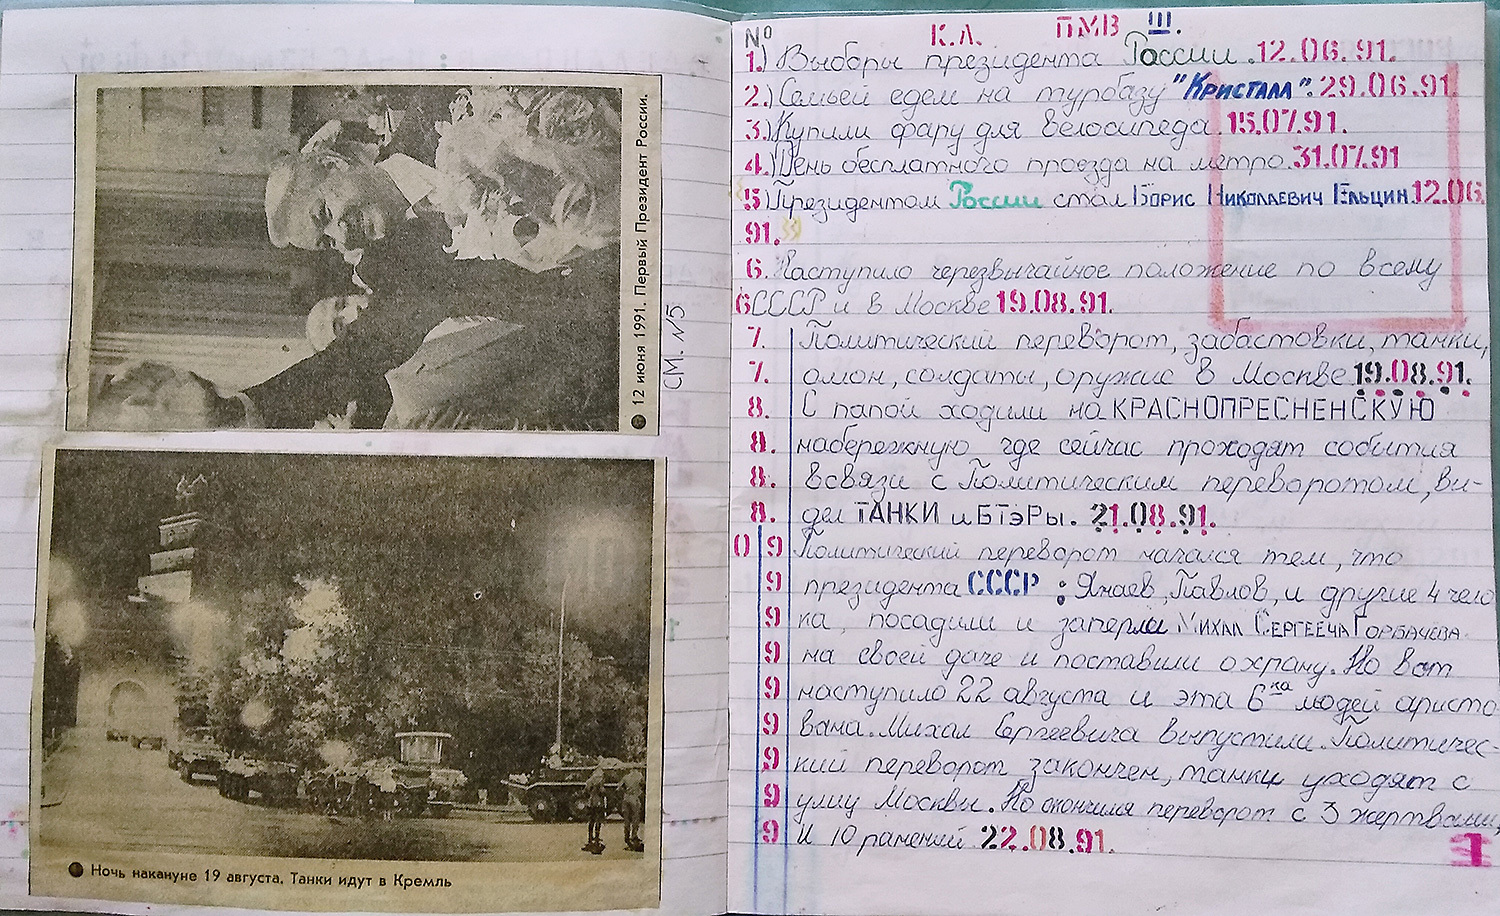 12 июня 1991. Первый Президент России.
СМ. №5
Ночь накануне 19 августа. Танки идут в Кремль
№ К.Л. ПМВ III.
1.) Выборы президента России. 12.06.91.
2.) Семьей едем на турбазу "Кристалл". 29.06.91.
3.) Купили фару для велосипеда. 15.07.91.
4.) День бесплатного проезда на метро. 31.07.91
5) Президентом России стал Борис Николаевич Ельцин 12.06.
91.
6. Наступило черезвычайное положение по всему
6 СССР и в Москве 19.08.91.
7. Политический переворот, забастовки, танки,
7. омон, солдаты, оружие в Москве 19.08.91.
8. С папой ходили на КРАСНОПРЕСНЕНСКУЮ
8. набережную где сейчас проходят события
8. всвязи с Политическим переворотом, ви-
8. дел ТАНКИ и БТэРы. 21.08.91.
0 9 Политический переворот начался тем, что
9 президента СССР: Янаев, Павлов, и другие 4 чело
9 ка, посадили и заперли Михал Сергееча Горбачева.
9 на своей даче и поставили охрану. Но вот
9 наступило 22 августа и эта 6ка людей аристо
9 вана. Михал Сергеевича выпустили. Политичес-
9 кий переворот закончен, танки уходят с
9 улиц Москвы. Но окончился переворот с 3 жертвами,
9 и 10 ранений 22.08.91.
1